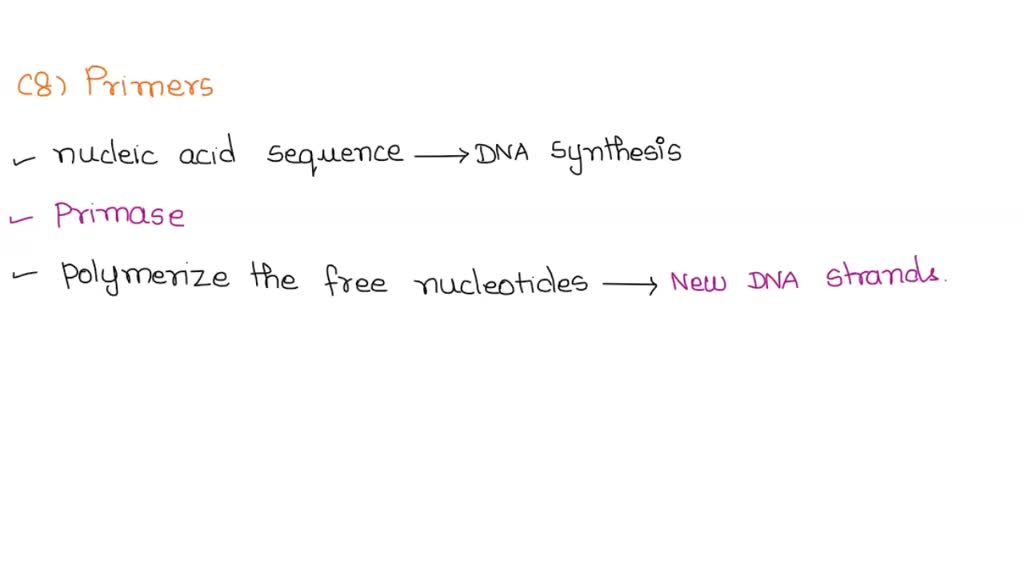 (8) Primers
✓ nucleic acid sequence → DNA synthesis
✓ Primase
✓ polymerize the free nucleotides → New DNA strands.